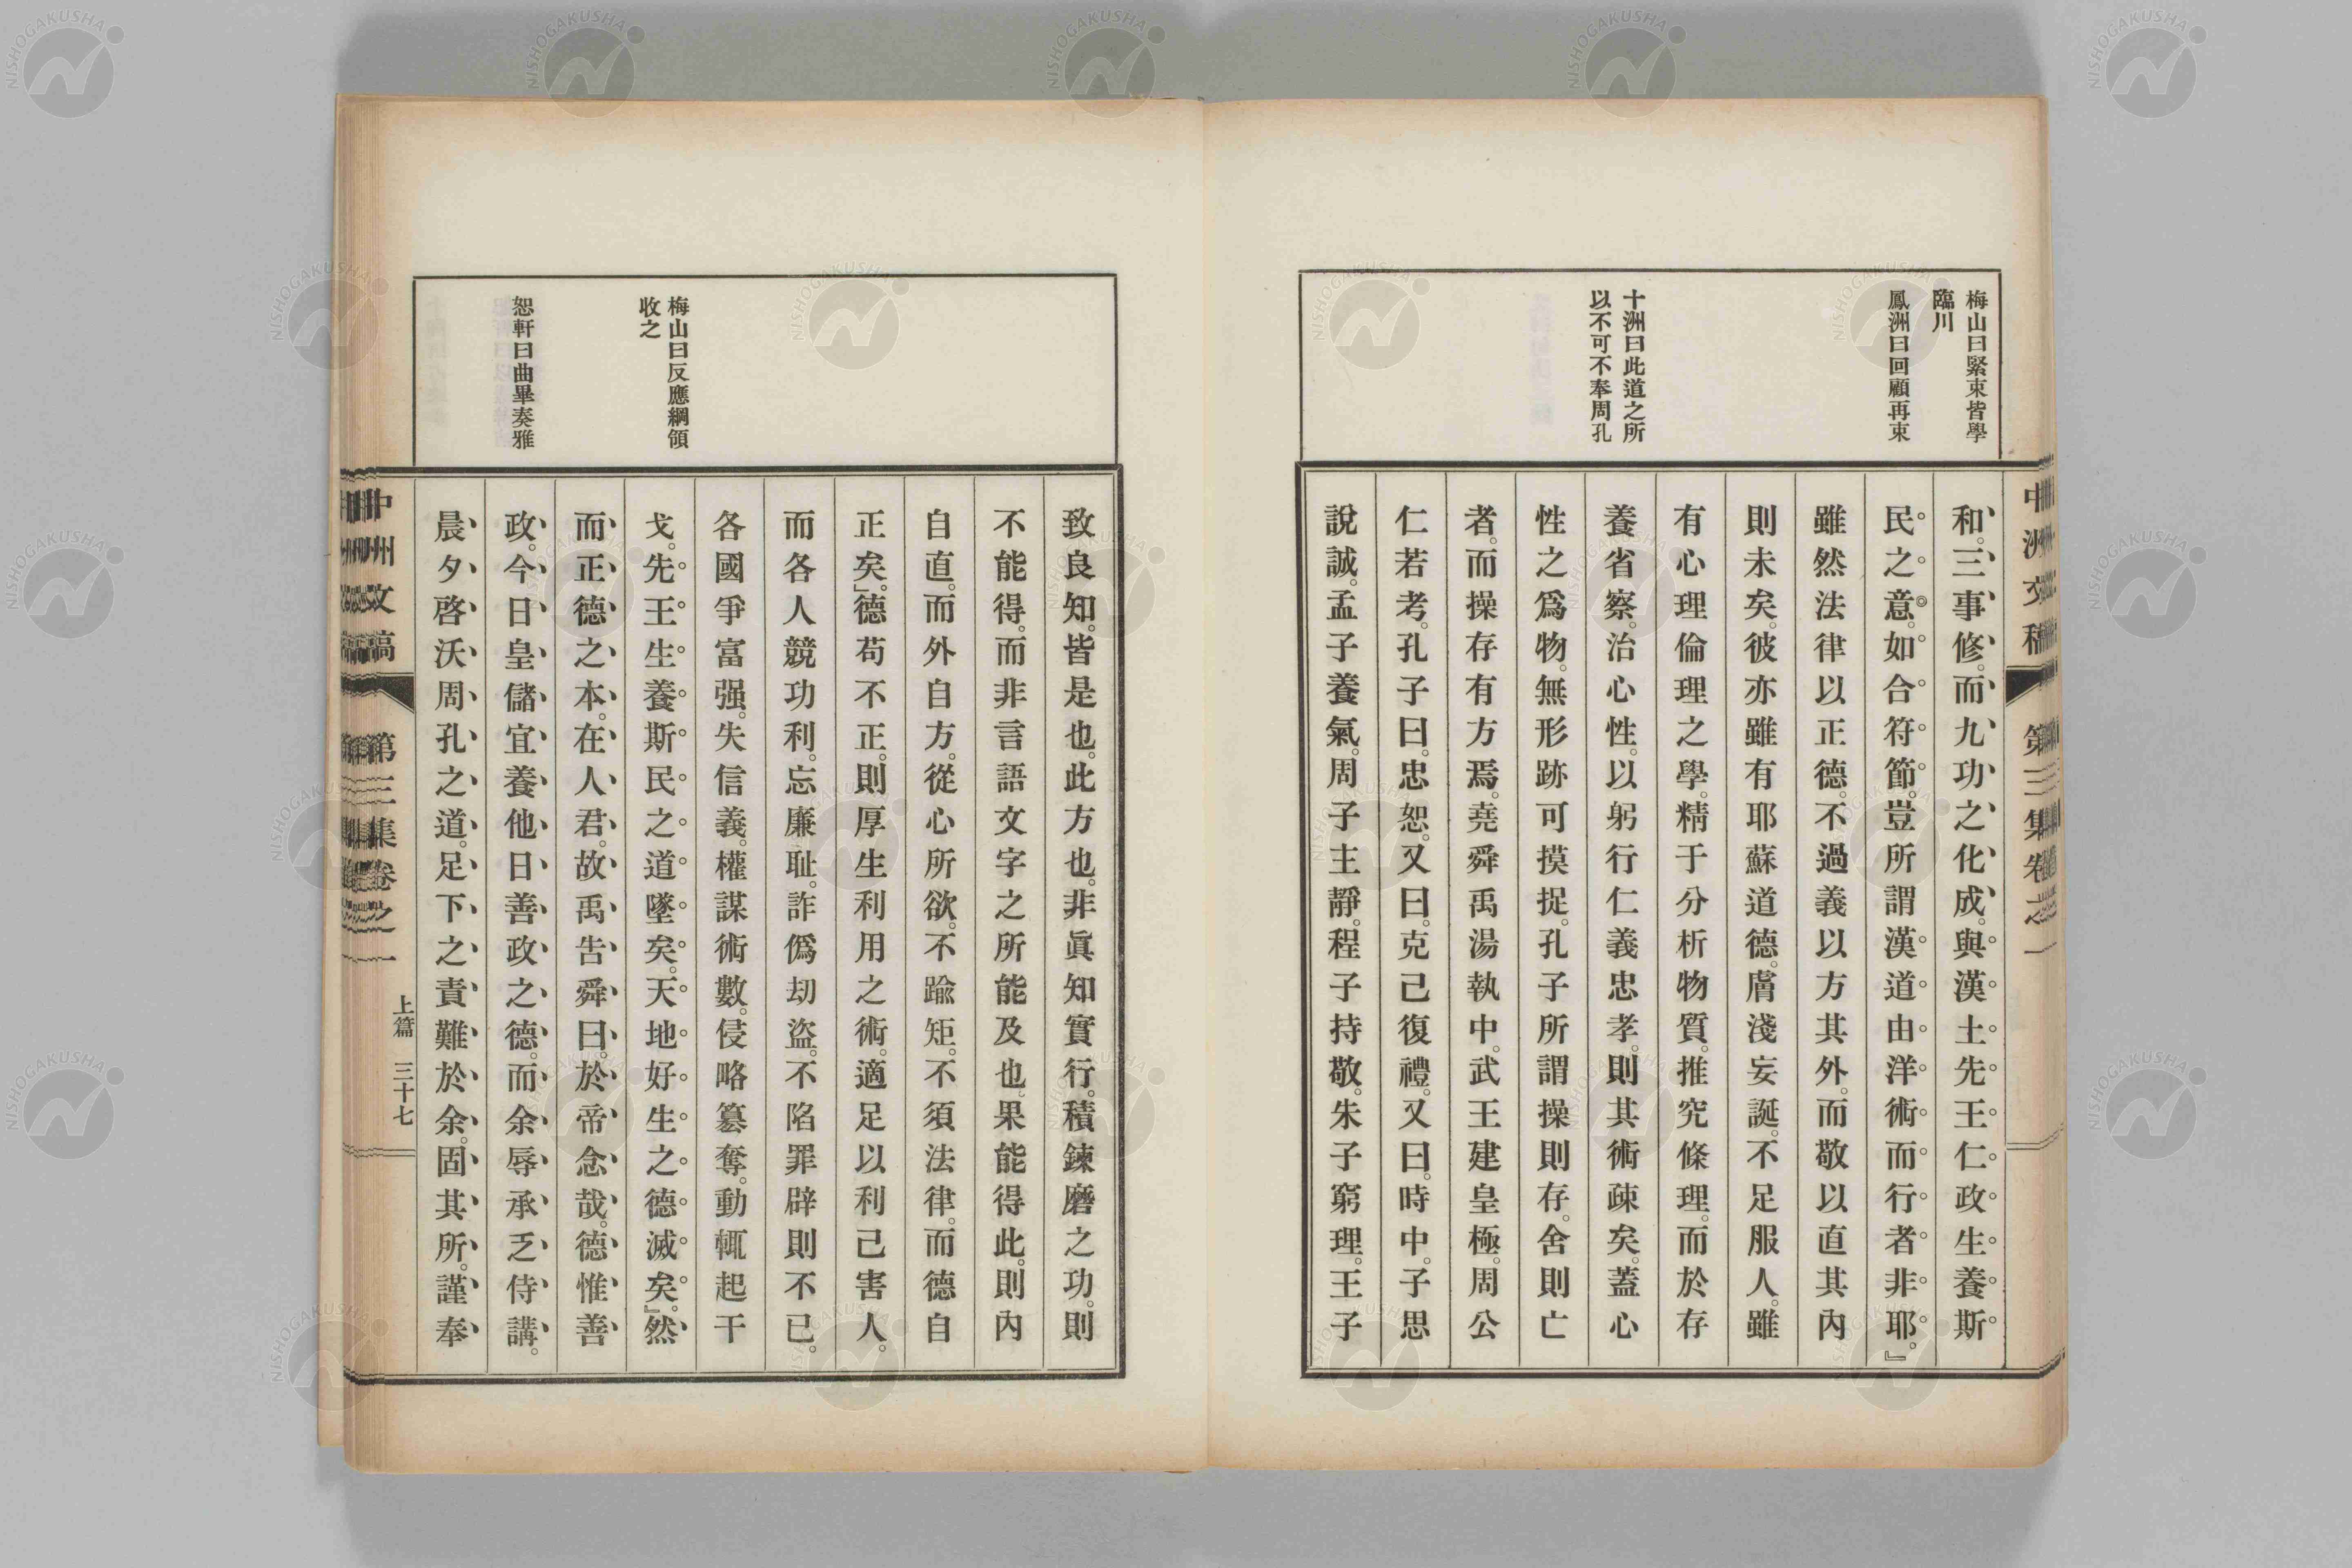 梅山曰緊束皆學
臨川
鳳洲曰回顧再束
十洲曰此道之所
以不可不奉周孔
和。三事修。而九功之化成。與漢土先王仁政生養斯
民之意。如合符節。豈所謂漢道由洋術而行者非耶。』
雖然法律以正德。不過義以方其外。而敬以直其內
則未矣。彼亦雖有耶蘇道德。膚淺妄誕。不足服人。雖
有心理倫理之學。精于分析物質。推究條理。而於存
養省察。治心性。以躬行仁義忠孝。則其術疎矣。蓋心
性之爲物。無形跡可摸捉。孔子所謂操則存。舍則亡
者。而操存有方焉。堯舜禹湯執中。武王建皇極。周公
仁若考。孔子曰。忠恕。又曰。克己復禮。又曰。時中。子思
說誠。孟子養氣。周子主靜。程子持敬。朱子窮理。王子
梅山曰反應綱領
收之
恕軒曰曲畢奏雅
致良知。皆是也。此方也。非眞知實行。積鍊磨之功。則
不能得。而非言語文字之所能及也。果能得此。則內
自直。而外自方。從心所欲。不踰矩。不須法律。而德自
正矣。』德苟不正。則厚生利用之術。適足以利己害人。
而各人競功利。忘廉耻。詐僞刧盜。不陷罪辟則不已。
各國爭富强。失信義。權謀術數。侵略簒奪。動輒起干
戈。先王生養斯民之道墜矣。天地好生之德滅矣。』然
而正德之本。在人君。故禹告舜曰。於帝念哉。德惟善
政。今日皇儲宜養他日善政之德。而余辱承乏侍講。
晨夕啓沃周孔之道。足下之責難於余。固其所。謹奉
中洲文稿
第三集卷之一
上篇 三十七
NISHOGAKUSHA